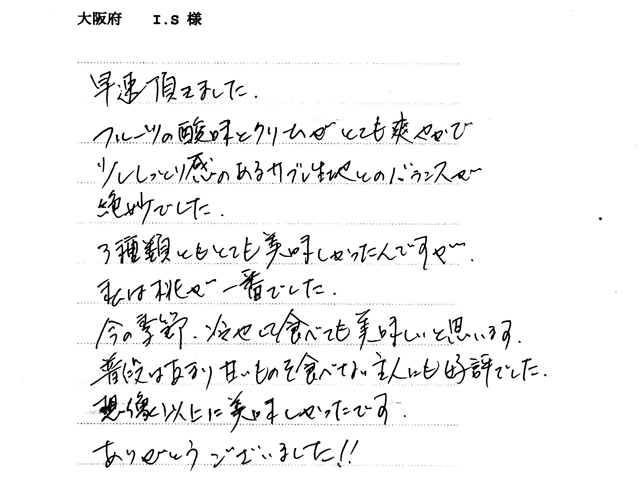 大阪府 I.S 様
早速頂きました.
フルーツの酸味とクリームがとても爽やかで
少ししっとり感のあるサブレ生地とのバランスが
絶妙でした.
3種類ともとても美味しかったんですが.
私は桃が一番でした.
今の季節.冷やして食べても美味しいと思います.
普段はあまり甘いものを食べない主人にも好評でした.
想像以上に美味しかったです.
ありがとうございました!!